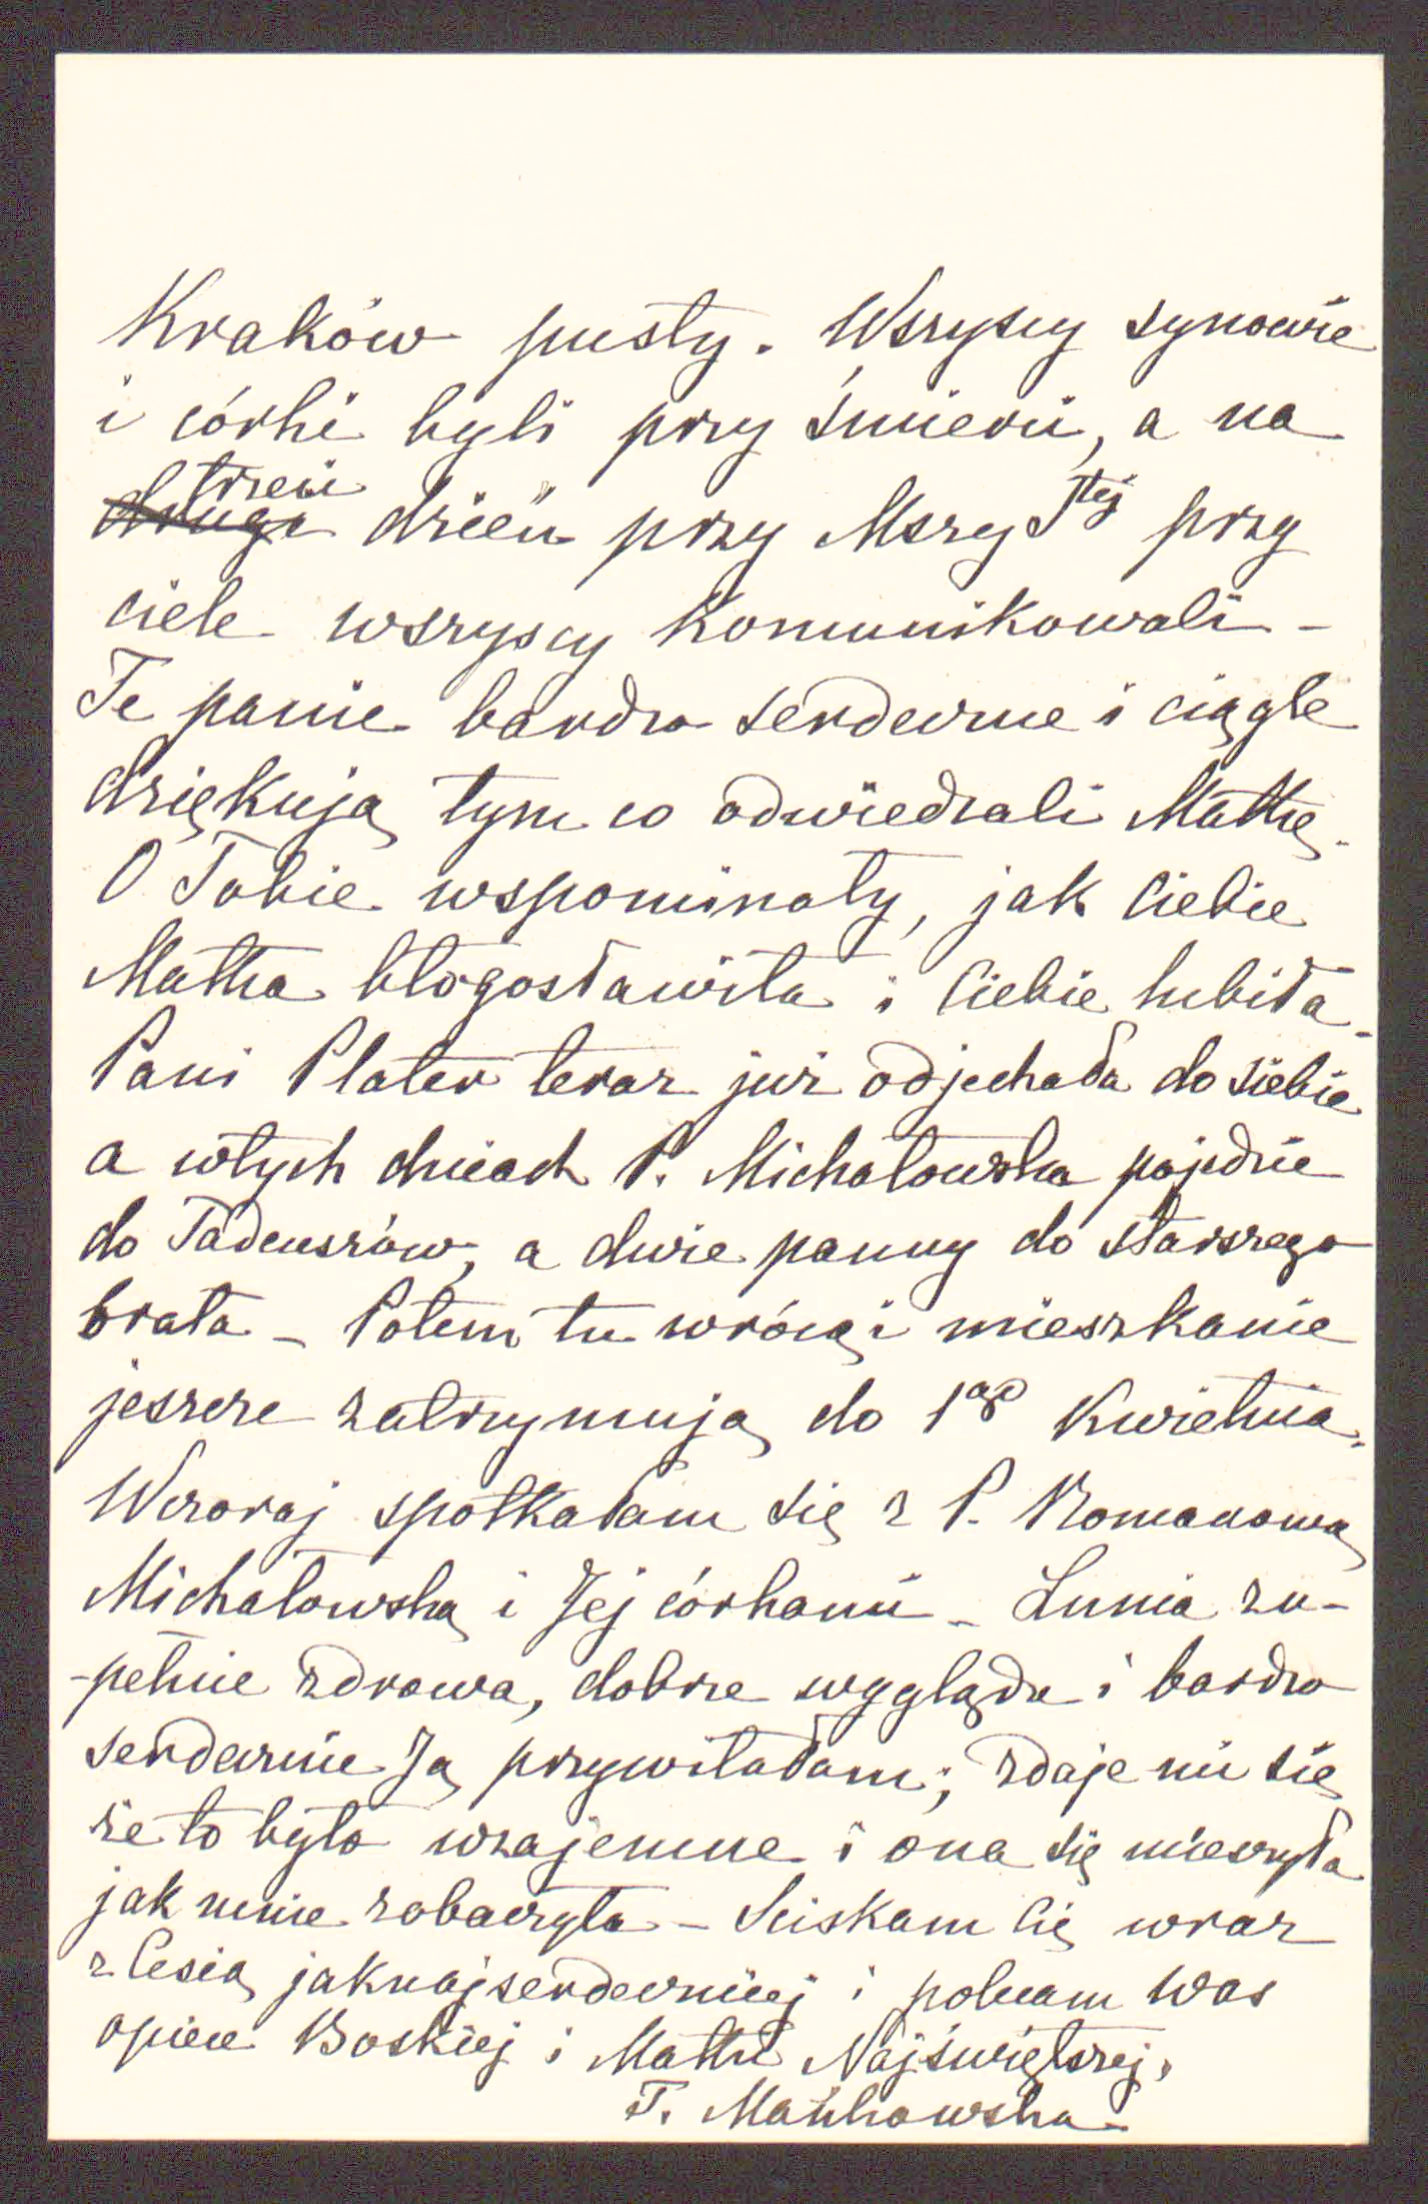 Kraków pusty. Wszyscy synowie
i córki byli przy śmierci, a na
trzeci
drugi dzień przy Mszy Stej przy
ciele wszyscy komunikowali -
Te panie bardzo serdeczne i ciągle
dziękują tym co odwiedzali Matkę.
O Tobie wspominały, jak Ciebie
Matka błogosławiła i Ciebie lubiła.
Pani Plater teraz już odjechała do siebie
a wtych dniach P. Michałowska pojedzie
do Tadeuszów, a dwie panny do starszego
brata - Potem tu wrócą i mieszkanie
jeszcze zatrzymują do 1go Kwietnia.
Wczoraj spotkałam się z P. Romanową
Michałowską i Jej córkami - Lunia zu-
-pełnie zdrowa, dobrze wygląda i bardzo
serdecznie Ją przywitałam; zdaje mi się
że to było wzajemne i ona się ucieszyła
jak mnie zobaczyła - Sciskam Cię wraz
z Cesią jaknajserdeczniej i polecam Was
opiece Boskiej i Matki Najświętszej.
T. Mańkowska